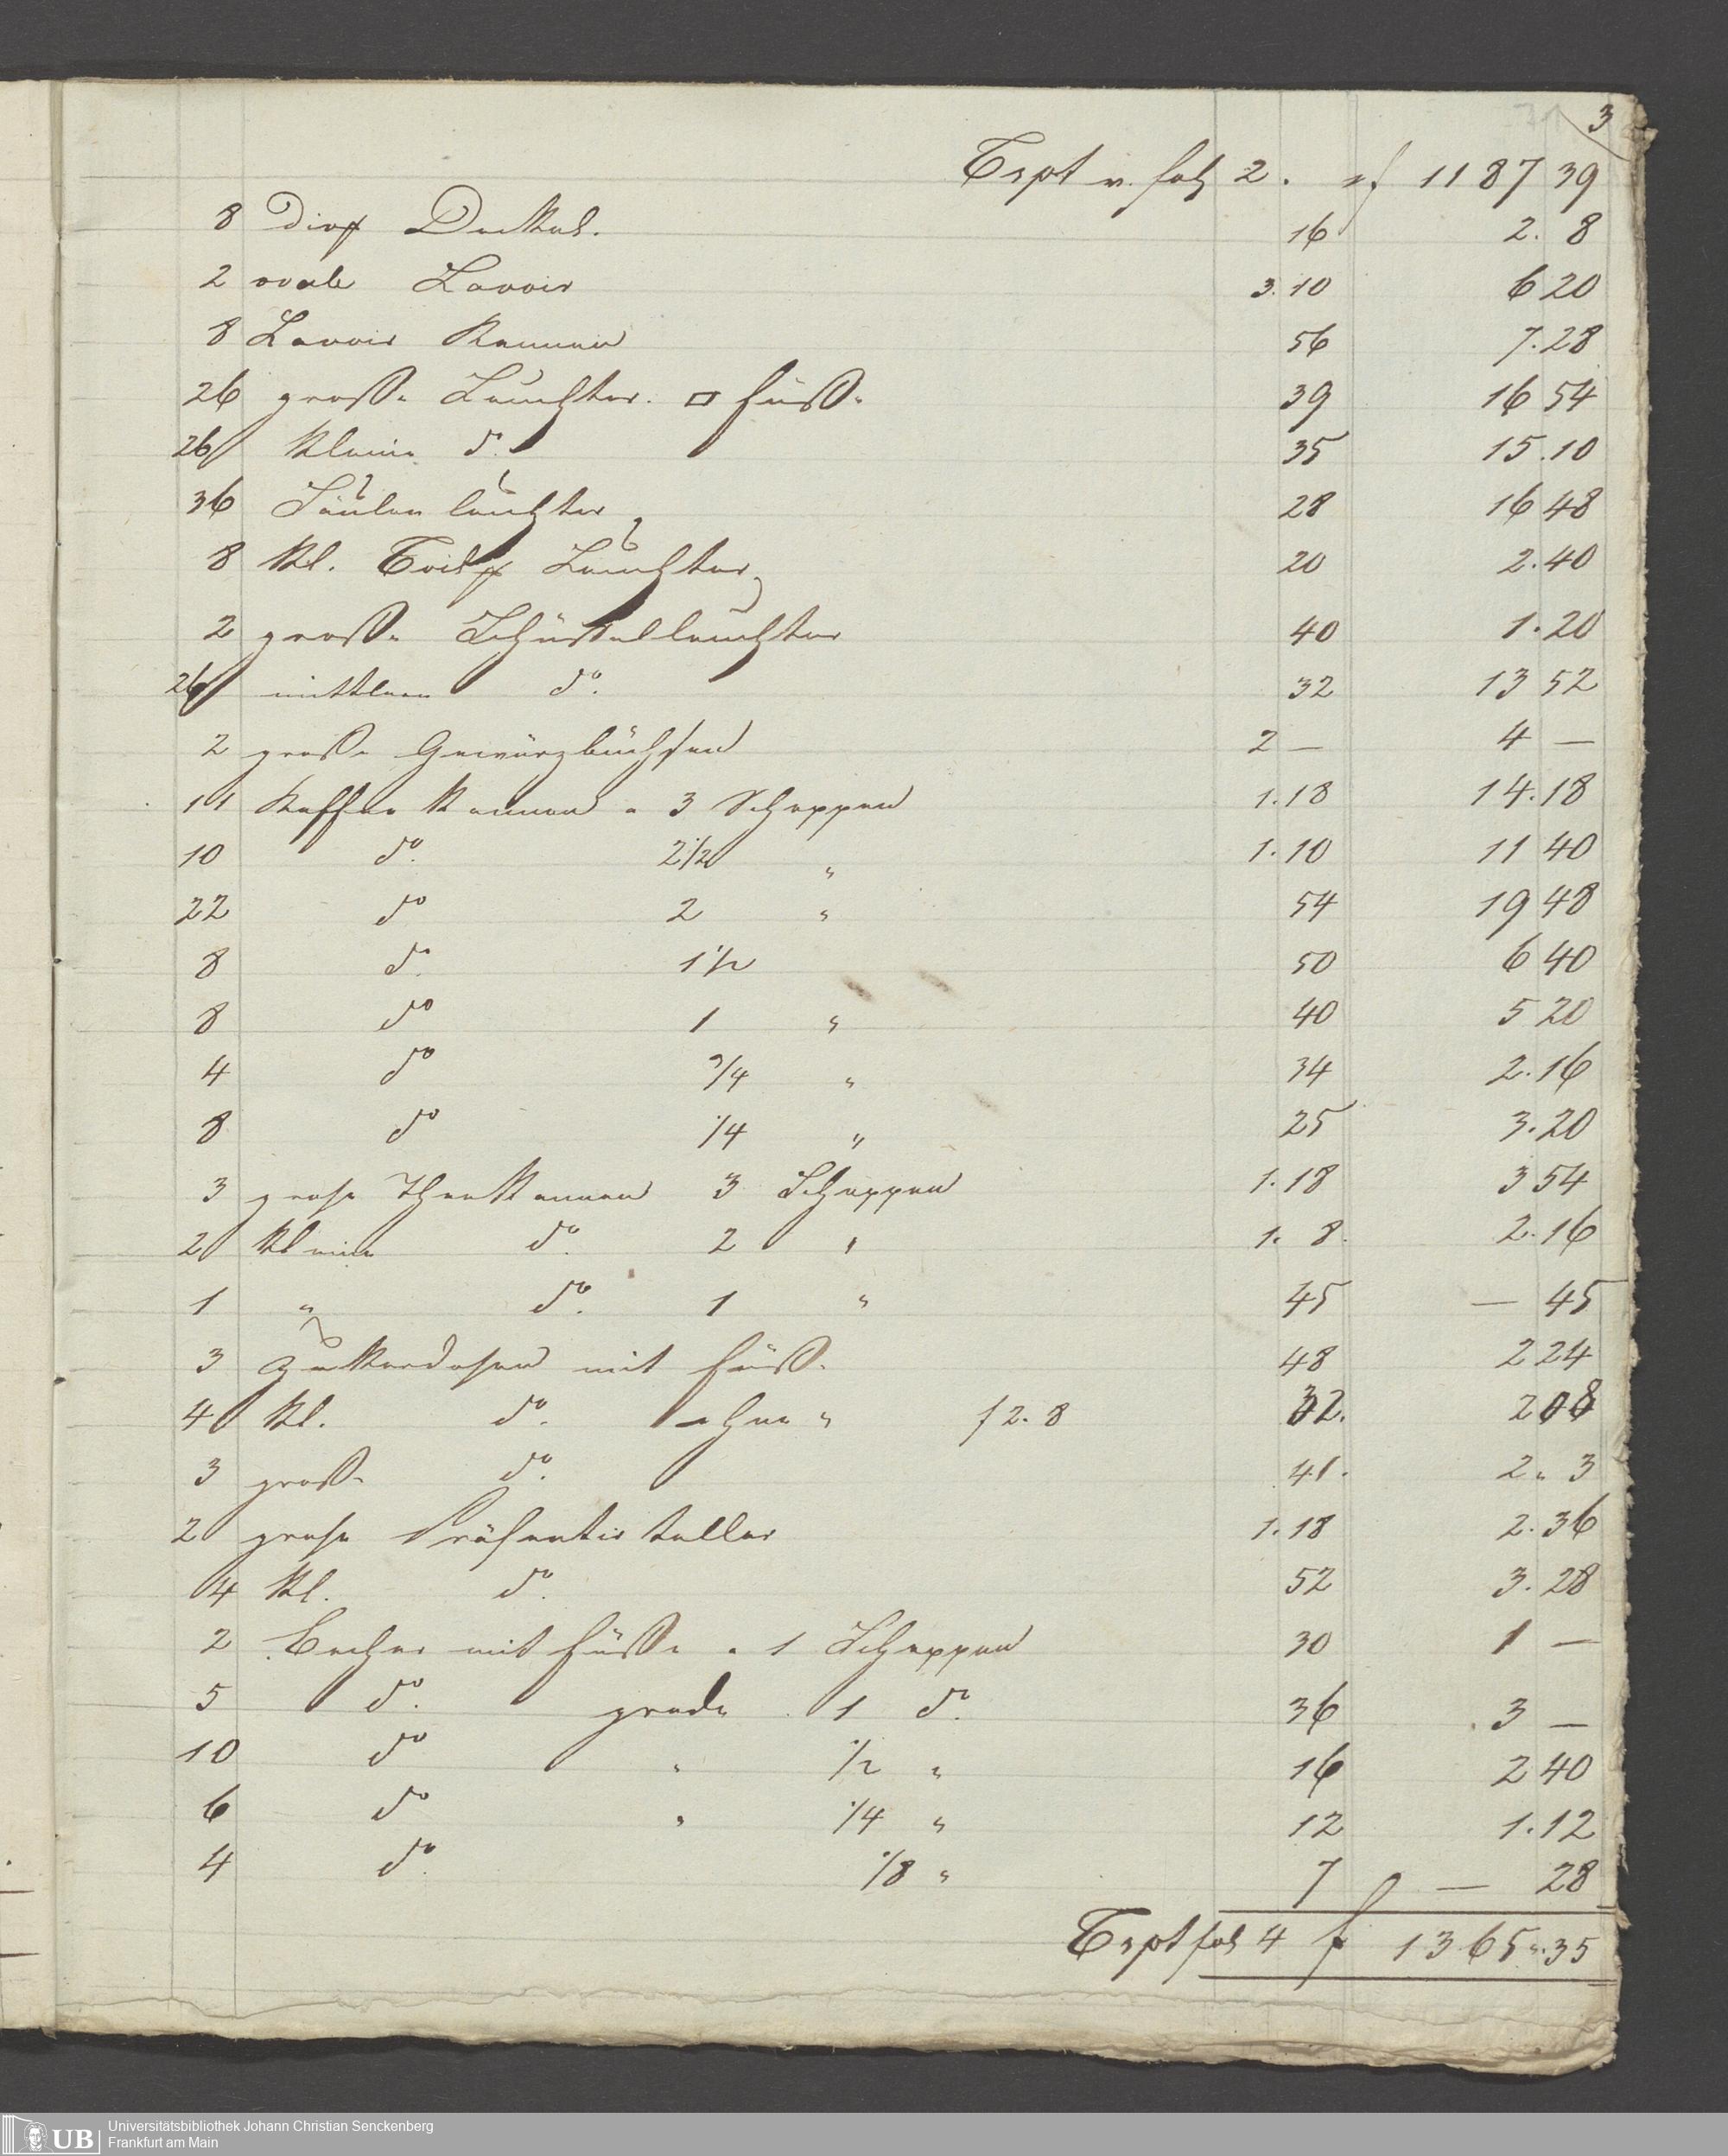 3
Trspt v. fol 2. f 1187 39
8 Deckel. 16 2. 8
2 ovale Lavoir 3.10 6 20
8 Lavoir Kannen 56 7.28
26 große Leuchter. □ Füße 39 16 54
26 kleine do. 35 15.10
36 Säulen leuchter 28 16 48
8 kl. Leuchter 20 2.40
2 große Schüsselleuchter 40 1.20
26 mittlere do. 32 13 52
2 große Gewürzbüchsen 2 — 4 —
11 Kaffee Kannen a 3 Schoppen 1.18 14.18
10 do. 2 1/2 " 1.10 11 40
22 do 2 " 54 19 48
8 do. 1 1/2 50 6 40
8 do 1 " 40 5 20
4 do 3/4 " 34 2.16
8 do 1/4 " 25 3.20
3 grose Theekannen 3 Schoppen 1.18 3 54
2 kleine do. 2 " 1. 8. 2.16
1 " do. 1 " 45 — 45
3 Zuckerdosen mit Füße 48 2 24
4 kl. do. ohne " f 2. 8 32. 2 08
3 große do. 41. 2 " 3
2 grose Präsentir teller 1.18 2.36
4 kl. do. 52 3.28
2 Becher mit Füße a 1 Schoppen 30 1 —
5 do. grade 1 do. 36 3 —
10 do " 1/2 " 16 2 40
6 do " 1/4 " 12 1.12
4 do. 1/8 " 7 — 28
Trspt fol 4 f 1365 " 35
UB Universitätsbibliothek Johann Christian Senckenberg
Frankfurt am Main